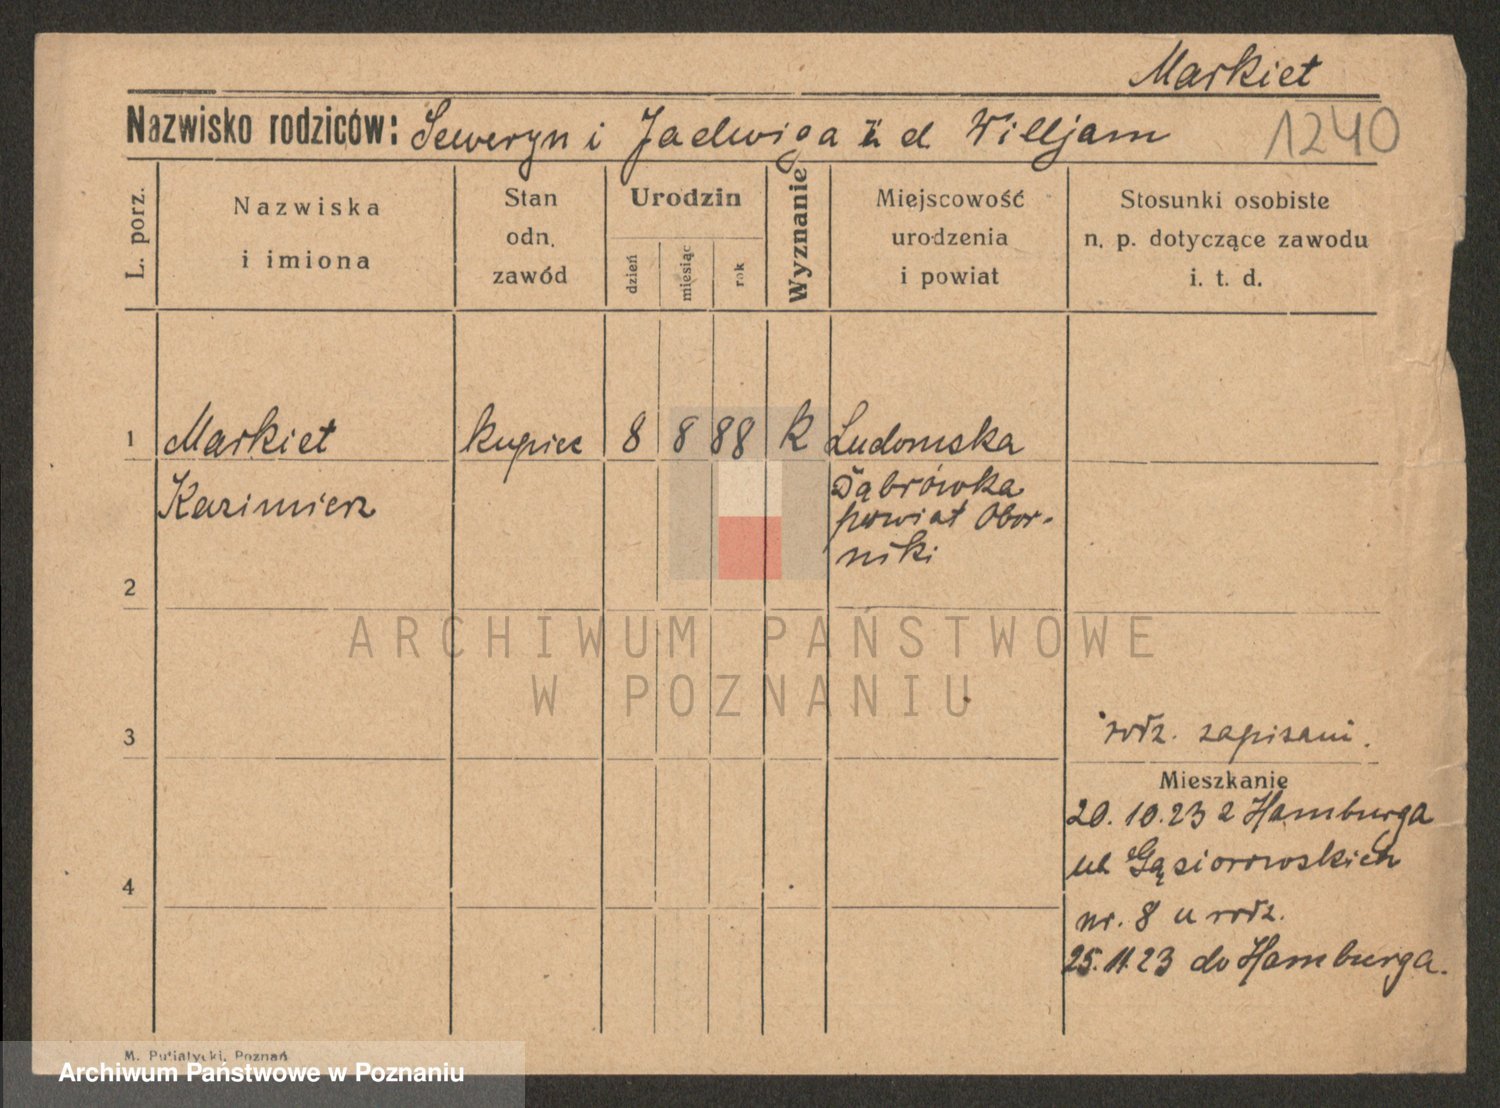 Markiet
Nazwisko rodziców: Seweryn i Jadwiga z d Willjam
1240
L. porz.
Nazwiska
i imiona
Stan
odn.
zawód
Urodzin
dzień
miesiąc
rok
Wyznanie
Miejscowość
urodzenia
i powiat
Stosunki osobiste
n. p. dotyczące zawodu
i. t. d.
1 Markiet kupiec 8 8 88 k Ludomska
Kazimierz Dąbrówka
powiat Obor-
niki
2
ARCHIWUM PAŃSTWOWE
W POZNANIU
3
rodz. zapisani.
Mieszkanie
20. 10. 23 z Hamburga
ul. Gąsiorowskich
4
nr. 8 u rodz.
25. 11. 23 do Hamburga.
M. Putiatycki, Poznań
Archiwum Państwowe w Poznaniu